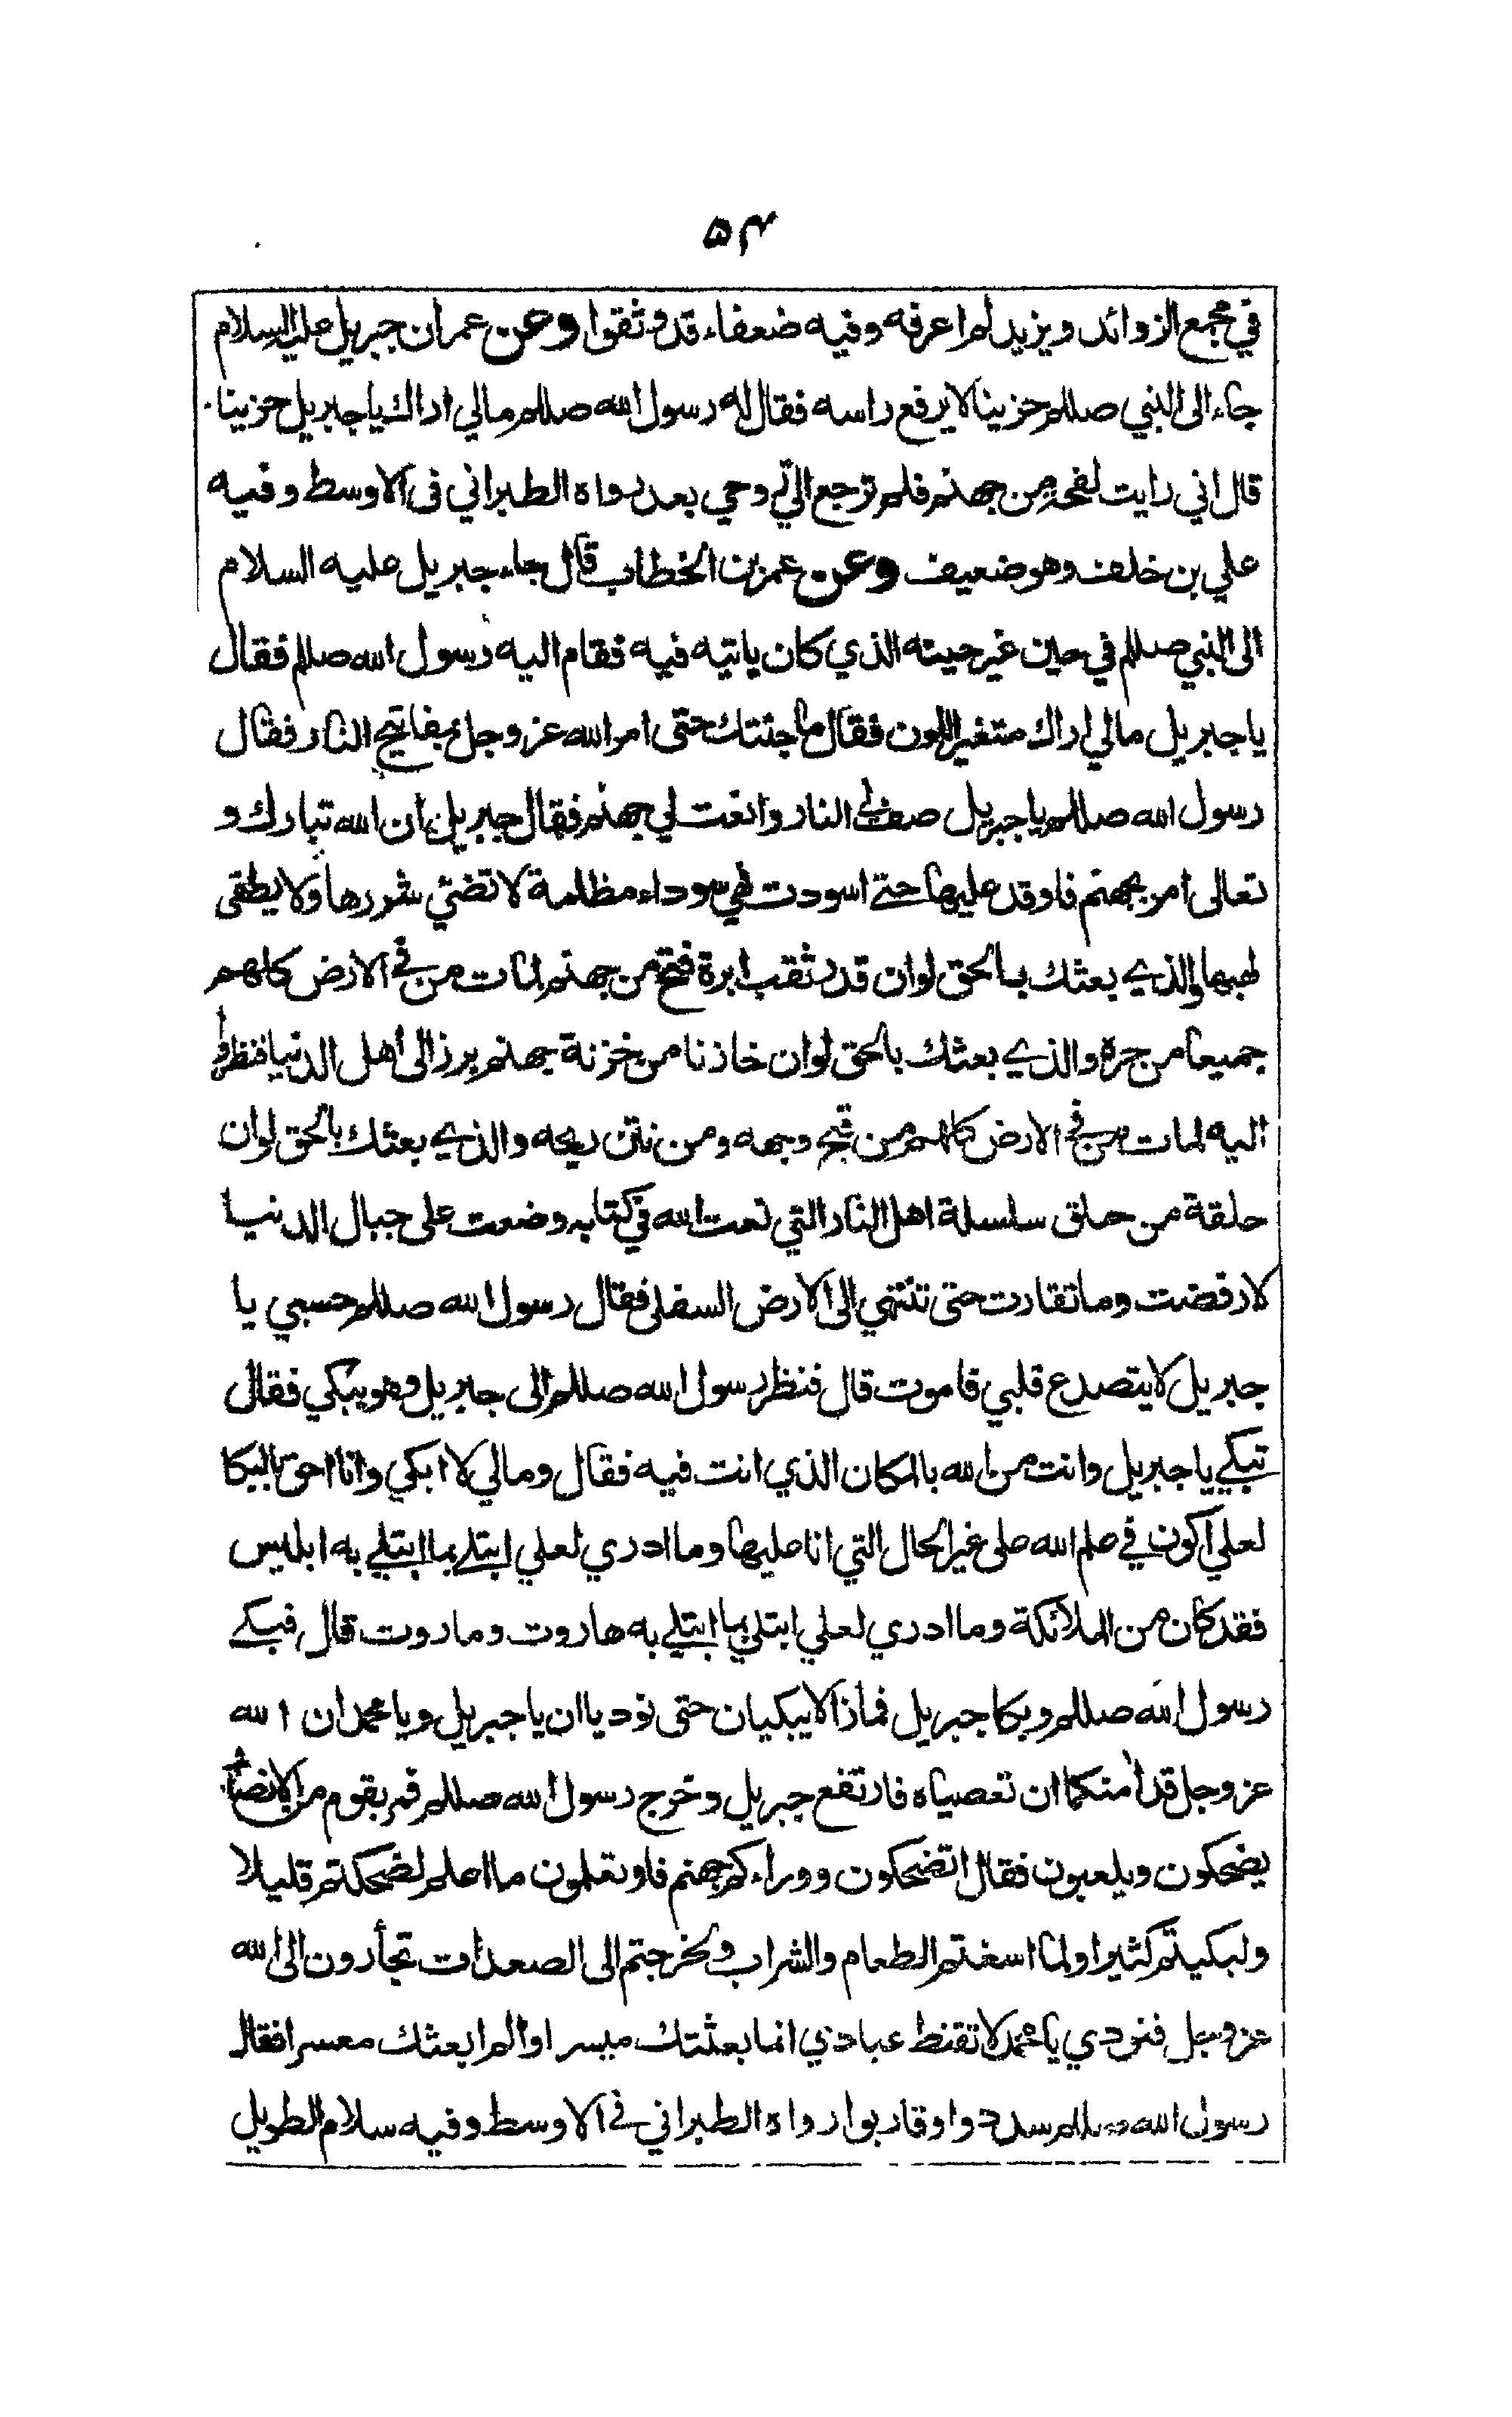 ۵۴
في مجمع الزوائد ويزيد لم اعرفه وفيه ضعفاء قد وثقوا وعن عمران جبريل عليه السلام
جاء الى النبي صللم حزينا لا يرفع راسه فقال له رسول الله صللم مالي اراك يا جبريل حزينا
قال اني رايت لفحة من جهنم فلم ترجع الي روحي بعد رواه الطبراني فى الاوسط وفيه
علي بن خلف وهو ضعيف وعن عمر بن الخطاب قال جاء جبريل عليه السلام
الى النبي صللم في حين غير حينه الذي كان ياتيه فيه فقام اليه رسول الله صللم فقال
يا جبريل مالي اراك متغير اللون فقال ما جئتك حتى امر الله عز وجل بمفاتيح النار فقال
رسول الله صللم يا جبريل صف لي النار وانعت لي جهنم فقال جبريل ان الله تبارك و
تعالى امر بجهنم فاوقد عليها حتى اسودت فهي سوداء مظلمة لا تضئي شررها ولا يطفى
لهبها والذي بعثك بالحق لو ان قدر ثقب ابرة فتح من جهنم لمات من في الارض كلهم
جميعا من حره والذي بعثك بالحق لو ان خازنا من خزنة جهنم برز الى اهل الدنيا فنظروا
اليه لمات من في الارض كلهم من قبح وجهه ومن نتن ريحه والذي بعثك بالحق لو ان
حلقة من حلق سلسلة اهل النار التي نعت الله في كتابه وضعت على جبال الدنيا
لارفضت وما تقارت حتى تنتهي الى الارض السفلى فقال رسول الله صللم حسبي يا
جبريل لا يتصدع قلبي فاموت قال فنظر رسول الله صللم الى جبريل وهو يبكي فقال
تبكي يا جبريل وانت من الله بالمكان الذي انت فيه فقال ومالي لا ابكي وانا احق بالبكا
لعلي اكون في علم الله على غير الحال التي انا عليها وما ادري لعلي ابتلى بما ابتلي به ابليس
فقد كان من الملائكة وما ادري لعلي ابتلي بما ابتلي به هاروت وماروت قال فبكى
رسول الله صللم وبكا جبريل فماذالا يبكيان حتى نوديا ان يا جبريل ويا محمد ان الله
عز وجل قد امنكما ان تعصياه فارتفع جبريل وخرج رسول الله صللم فمر بقوم من الانصار
يضحكون ويلعبون فقال اتضحكون ووراءكم جهنم فلو تعلمون ما اعلم لضحكتم قليلا
ولبكيتم كثيرا ولما اسغتم الطعام والشراب ولخرجتم الى الصعدات تجأرون الى الله
عز وجل فنودي يا محمد لا تقنط عبادي انما بعثتك ميسرا والم ابعثك معسرا فقال
رسول الله صللم سددوا وقاربوا رواه الطبراني في الاوسط وفيه سلام الطويل